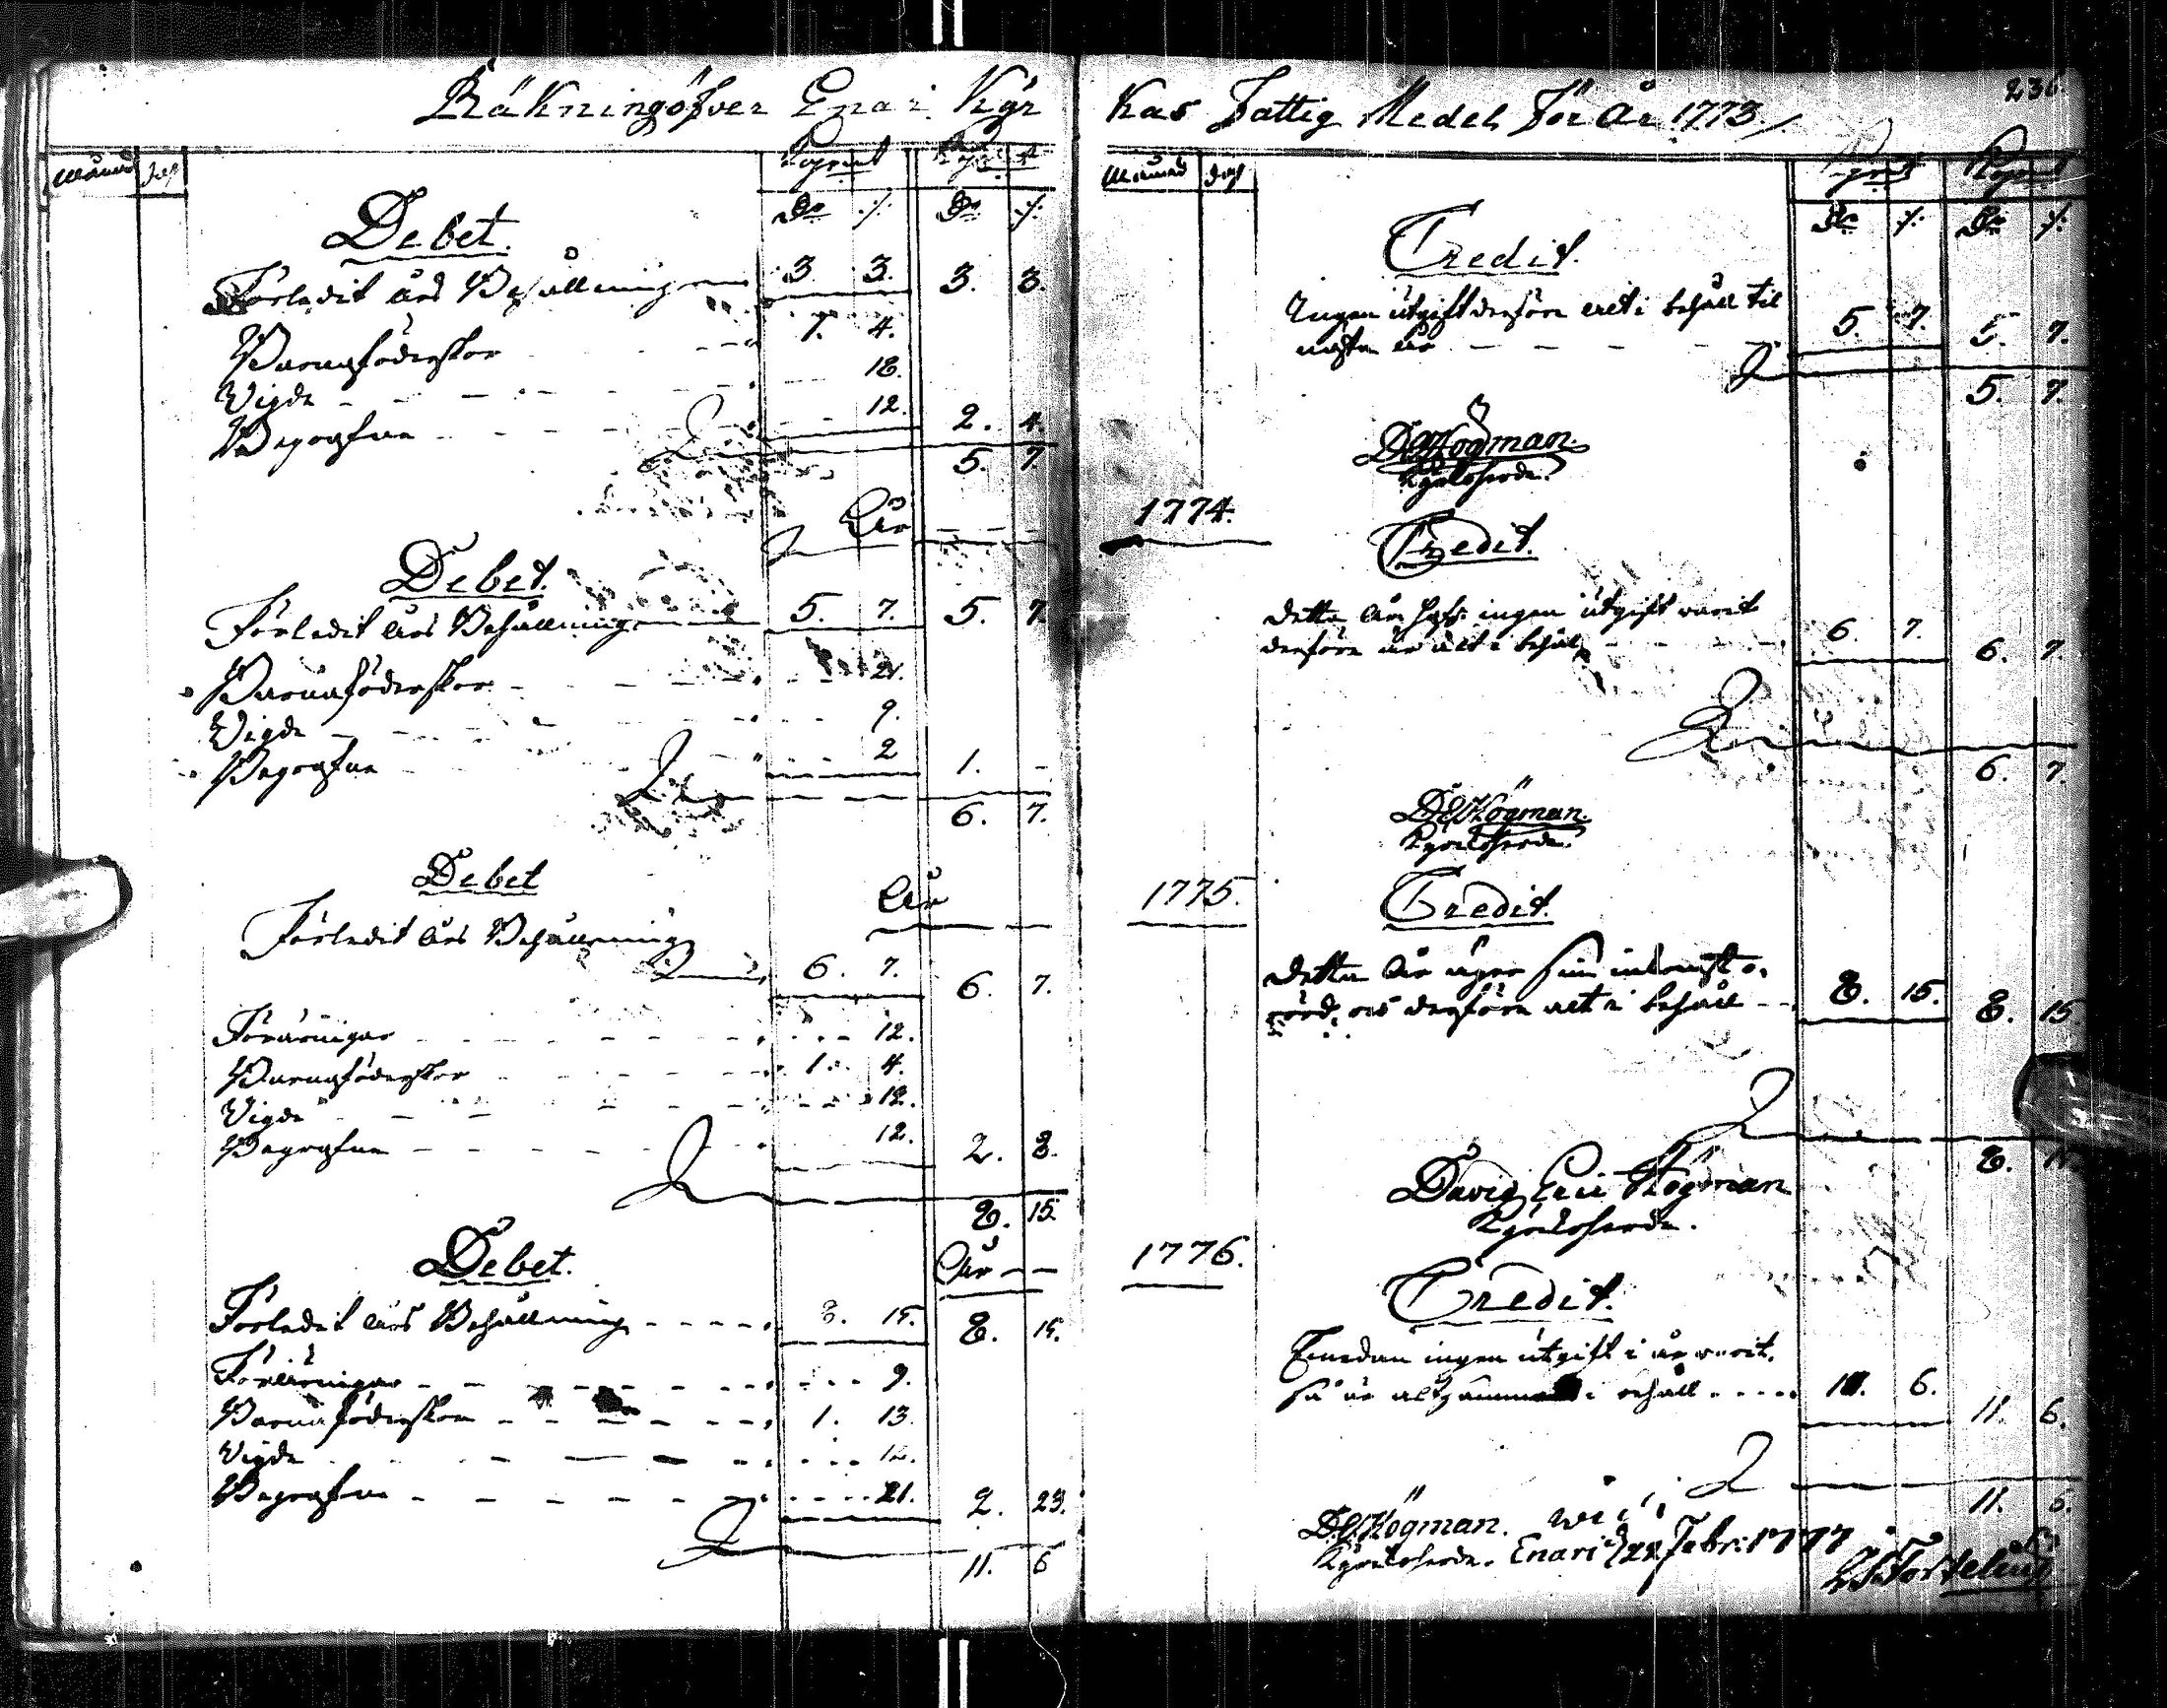 Räkning öfver Enari Kyr
Månad Dag
Debet.
Dr /.
Dr /.
Förledit års Behållning 3. 3. 3. 3.
Barnaföderskor 1. 4.
Vigde 12.
Begrafne 12. 2. 4.
5. 7.
År
Debet.
Förledit års Behållning 5. 7. 5. 7.
Barnaföderskor 21.
Vigde 9.
Begrafne 2 1. -
6. 7.
Debet
År
Förledit års Behållning
6. 7. 6. 7.
Föräringar 12.
Barnaföderskor 1. 4.
Vigde 12.
Begrafne 12. 2. 8.
8. 15.
Debet.
År
Förledit års Behållning 8. 15. 8. 15.
Föräringar 9.
Barnaföderskor 1. 13.
Vigde 12.
Begrafne 21. 2. 23.
11. 6
236.
kas Fattig Medel För År 1773.
Månad Dag
Credit.
Dr /. Dr /.
Ingen utgift derföre alt i behåll til
nästa år 5. 7. 5. 7.
5. 7.
DEHögman.
Kyrkoherde.
1774.
Credit.
Detta år hafr ingen utgift warit
derföre är alt i behåll 6. 7. 6. 7.
6. 7.
DEHögman.
Kyrkoherde.
1775.
Credit.
Detta år inkomst o-
rörd, derföre alt i behåll 8. 15. 8. 15.
8. 15.
David Eric Högman
Kyrkoherde.
1776.
Credit.
Emedan ingen utgift i år warit.
så är altsammans i behåll 11. 6. 11. 6.
11. 6.
D.E.Högman.
Kyrkoherde. Enari d 22 Febr: 1777